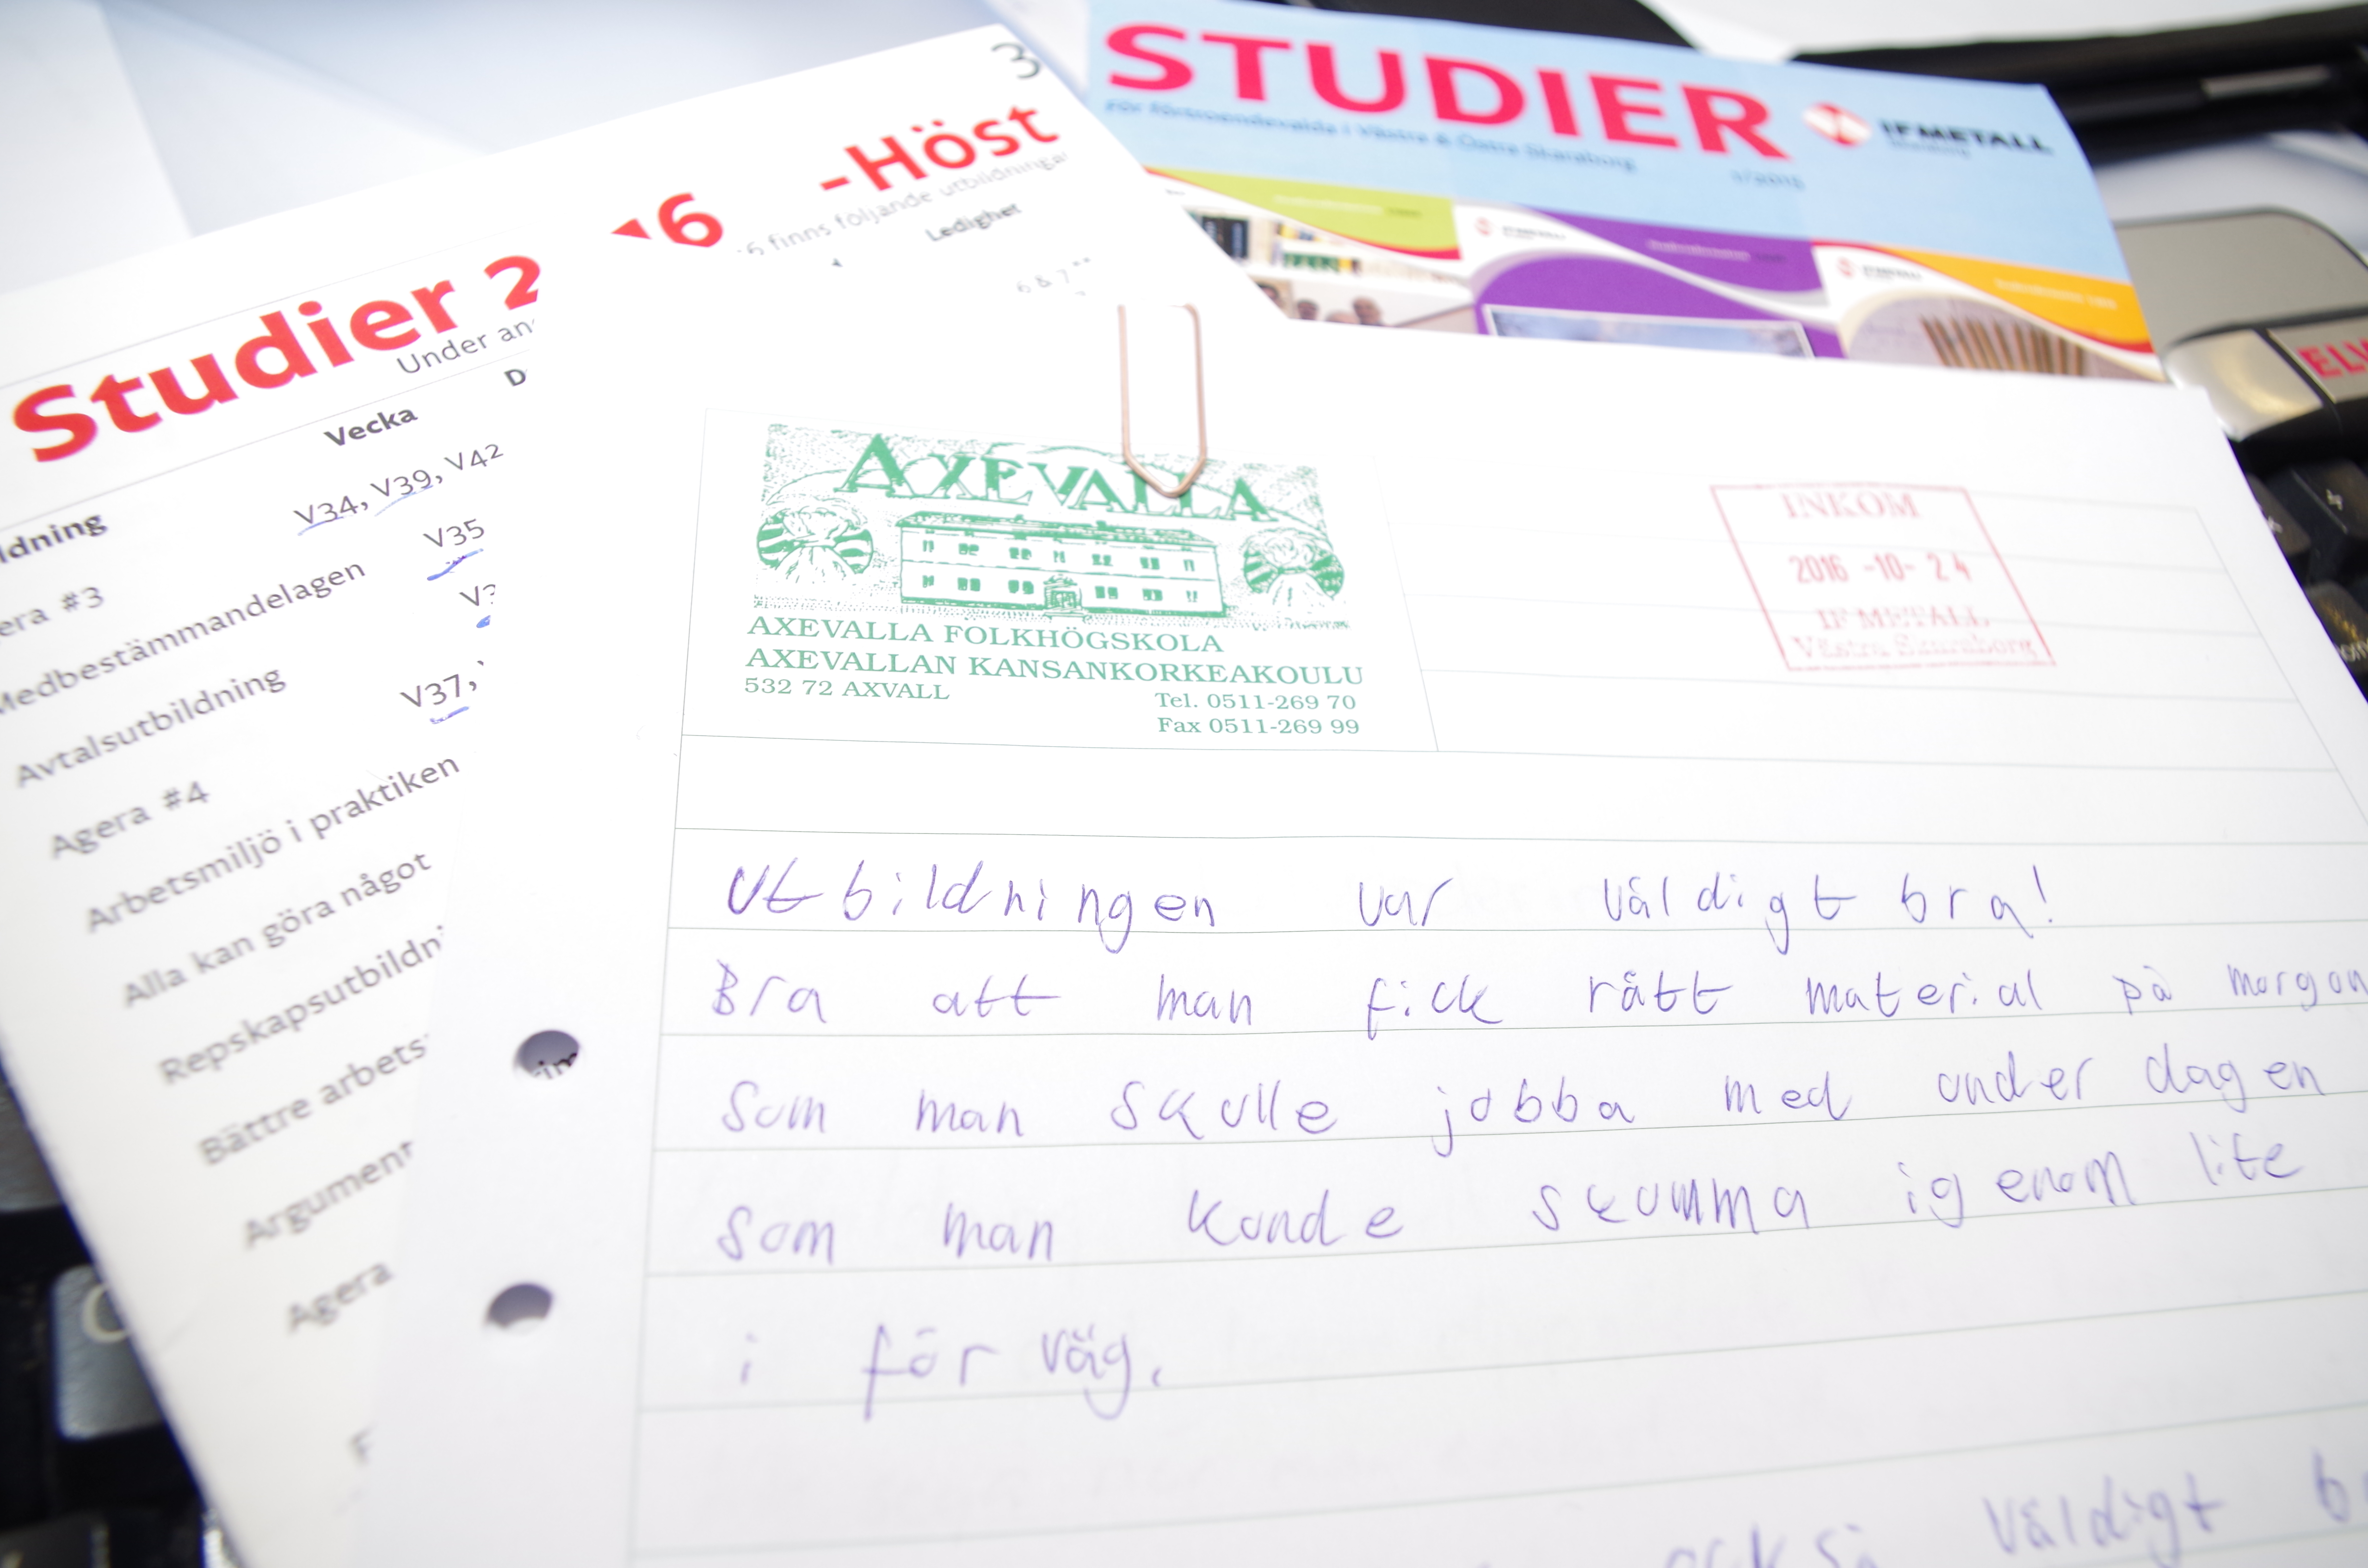 3
Studier 2 16 -Höst
Under 16 finns följande utbildningar
Vecka
Ledighet
V34, V39, V42
6 & 7
V35
#3
Medbestämmandelagen
Avtalsutbildning
V37,
Agera #4
Arbetsmiljö i praktiken
Alla kan göra något
Bättre
Agera
STUDIER
För förtroendevalda i Västra & Östra Skaraborg
1/2015
IF METALL
AXEVALLA
AXEVALLA FOLKHÖGSKOLA
AXEVALLAN KANSANKORKEAKOULU
532 72 AXVALL
Tel. 0511-269 70
Fax 0511-269 99
INKOM
2016 -10- 24
IF METALL
Västra Skaraborg
Utbildningen var väldigt bra!
Bra att man fick rätt material på morgon
som man skulle jobba med under dagen
som man kunde skumma igenom lite
i för väg.
också väldigt